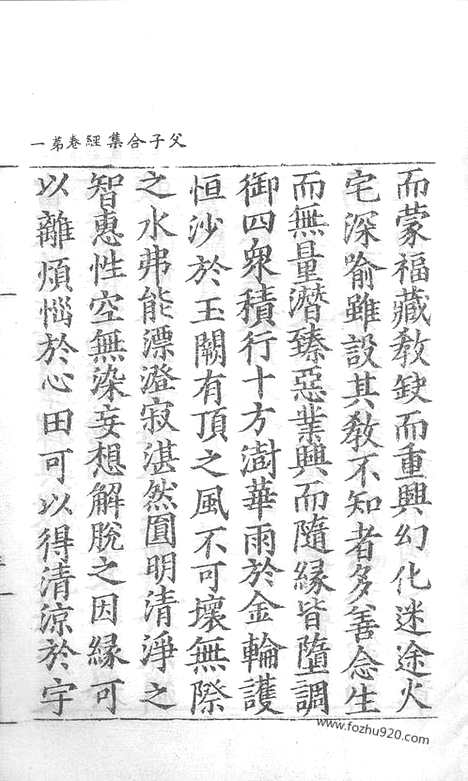 父子合集經卷苐一
而蒙福藏教缺而重興幻化迷途火
宅深喻雖設其教不知者多善念生
而無量潛臻惡業興而隨緣皆墮調
御四衆積行十方澍華雨於金輪護
恒沙於玉闕有頂之風不可壞無際
之水弗能漂澄寂湛然圓明清淨之
智惠性空無染妄想解脫之因緣可
以離煩惱於心田可以得清涼於宇
www.fozhu920.com